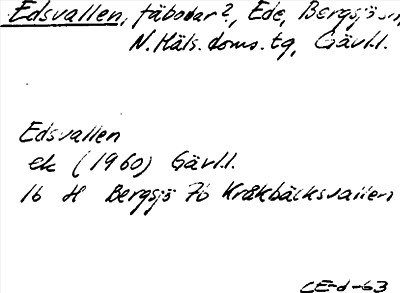 Edsvallen, fäbodar², Ede, Bergsjö sn,
N. Häls. doms. tg, Gävl.l.
Edsvallen
ek (1960) Gävl.l.
16 H Bergsjö 7b Kråkbäcksvallen
CE-d-63